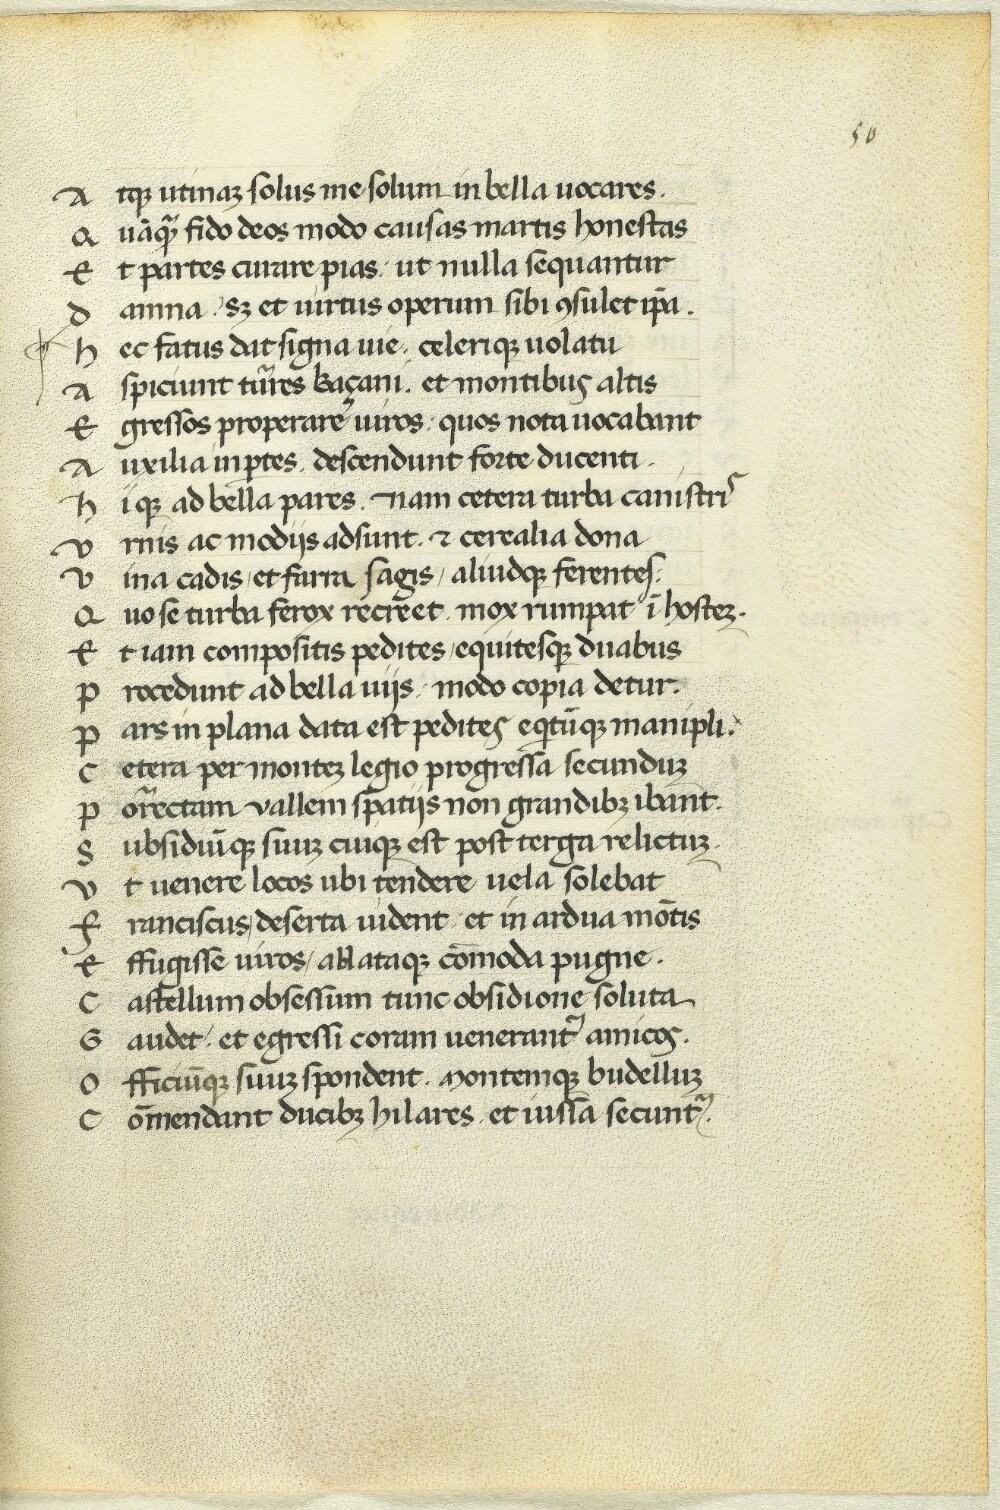 50
A tqꝫ utinaꝫ solus me solum in bella uocares.
Q uāqꝫ fido deos modo causas martis honestas
E t partes curare pias. ut nulla sequantur
D amna. sꝫ et uirtus operum sibi ꝯsulet ip̄a.
H ec fatus dat signa uie. celeriqꝫ uolatu
A spiciunt tur̄es baçani. et montibus altis
E gressos properare uiros. quos nota uocabant
A uxilia in ꝑtes. descendunt forte ducenti.
H iqꝫ ad bella pares. nam cetera turba canistris
V rnis ac modijs adsunt. ⁊ cerealia dona
V ina cadis, et farra sagis, aliudqꝫ ferentes.
Q uo se turba ferox recreēt. mox rumpat ī hosteꝫ.
E t iam compositis pedites, equitesqꝫ duabus
P rocedunt ad bella uijs. modo copia detur.
P ars in plana data est pedites eqtūqꝫ manipli.
C etera per monteꝫ legio progressa secunduꝫ
P orrectam vallem spatijs non grandibꝫ ibant.
S ubsidiūqꝫ suuꝫ cuiqꝫ est post terga relictuꝫ.
V t uenere locos ubi tendere uela solebat
F ranciscus, deserta uident. et in ardua mōtis
E ffugisse uiros, ablataqꝫ cōmoda pugne.
C astellum obsessum tunc obsidione soluta
G audet. et egressi coram uenerant᷑ amicos.
O fficiūqꝫ suuꝫ spondent. montemqꝫ budelluꝫ
C ōmendant ducibꝫ hilares. et iussa secunt᷑.